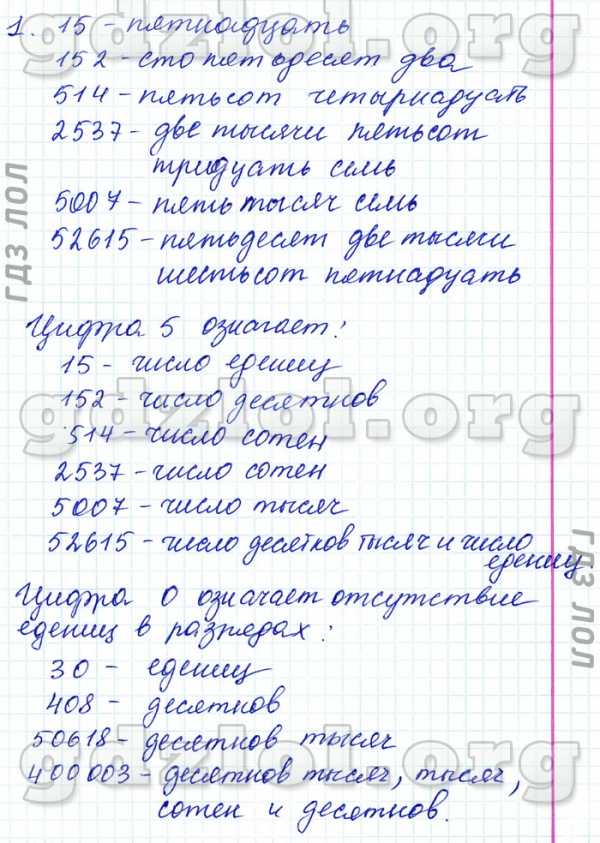 1. 15 - пятнадцать
152 - сто пятьдесят два
514 - пятьсот четырнадцать
2537 - две тысячи пятьсот
тридцать семь
5007 - пять тысяч семь
52615 - пятьдесят две тысячи
шестьсот пятнадцать
Цифра 5 означает:
15 - число едениц
152 - число десятков
514 - число сотен
2537 - число сотен
5007 - число тысяч
52615 - число десятков тысяч и число
едениц.
Цифра 0 означает отсутствие
едениц в разрядах:
30 - едениц
408 - десятков
50618 - десятков тысяч
400 003 - десятков тысяч, тысяч,
сотен и десятков.
gdzlol.org
gdzlol.org
gdzlol.org
gdzlol.org
ГДЗ ЛОЛ
ГДЗ ЛОЛ